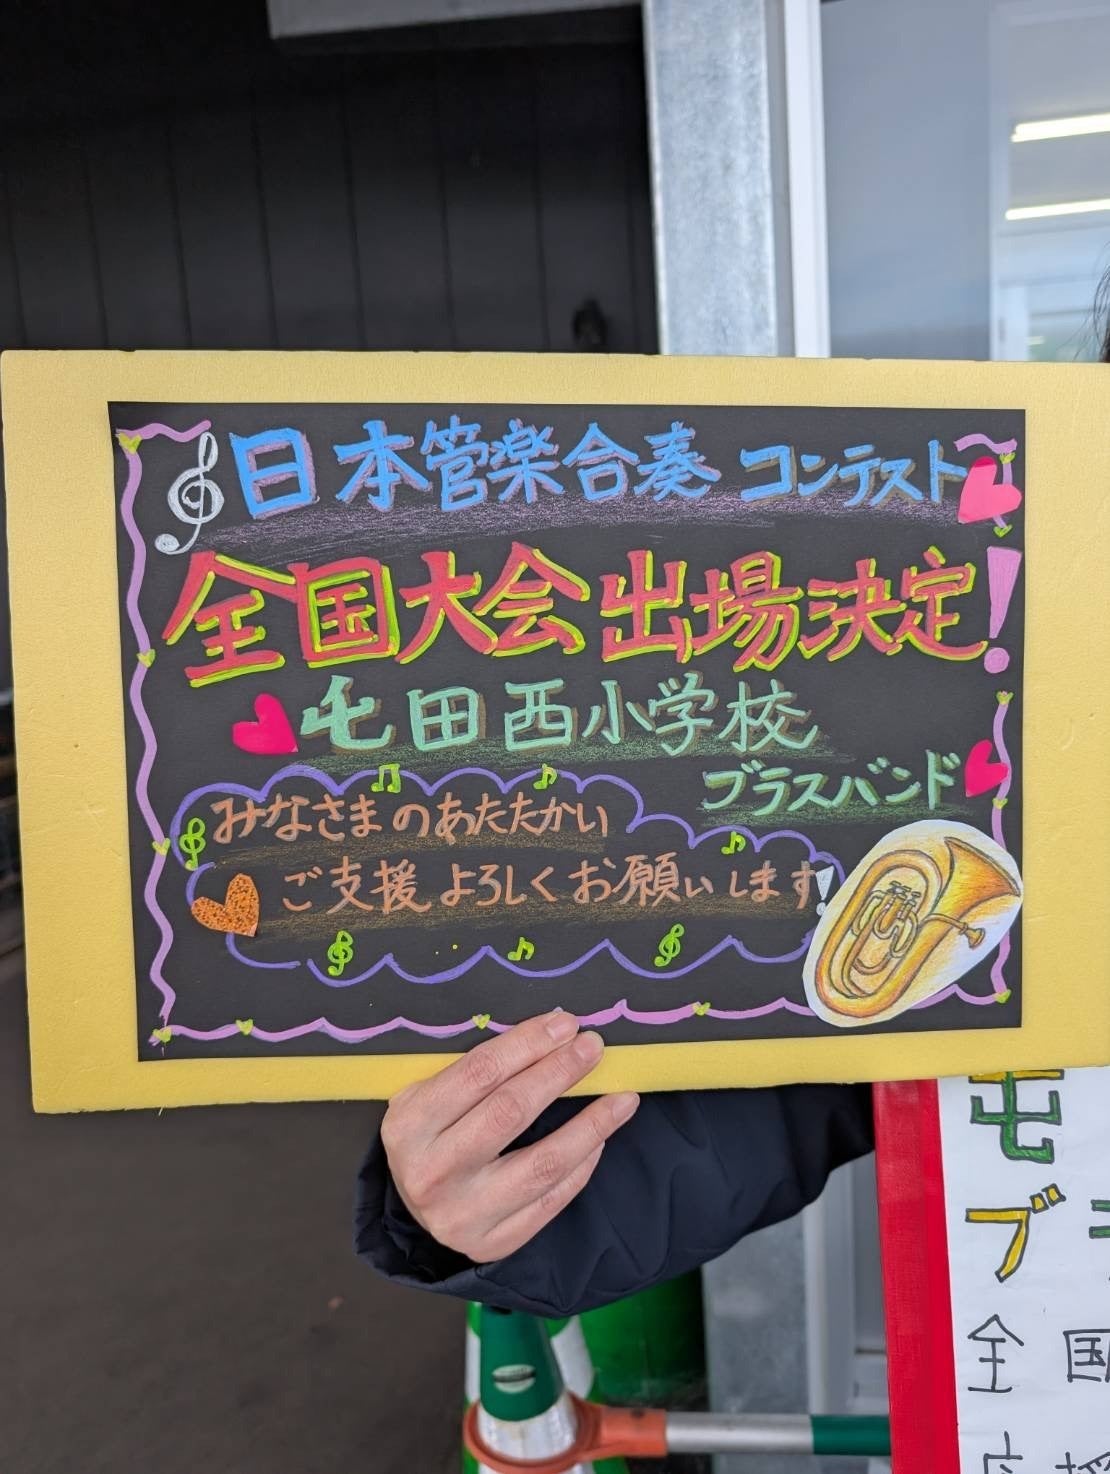 日本管楽合奏 コンテスト
全国大会出場決定!
屯田西小学校
ブラスバンド
みなさまのあたたかい
ご支援よろしくお願いします!
屯
ブ
全国